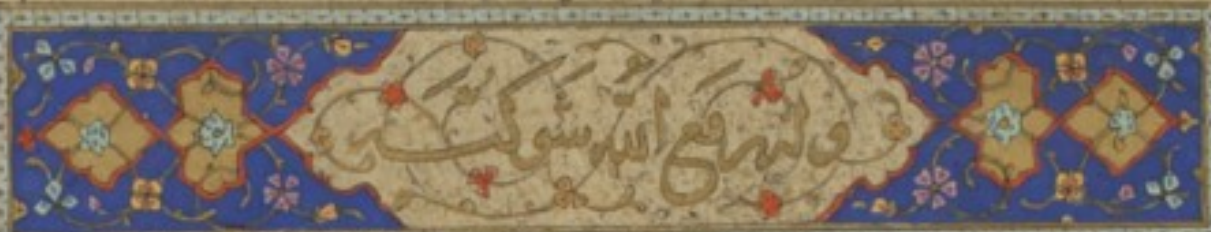 وله رفع الله شوكته